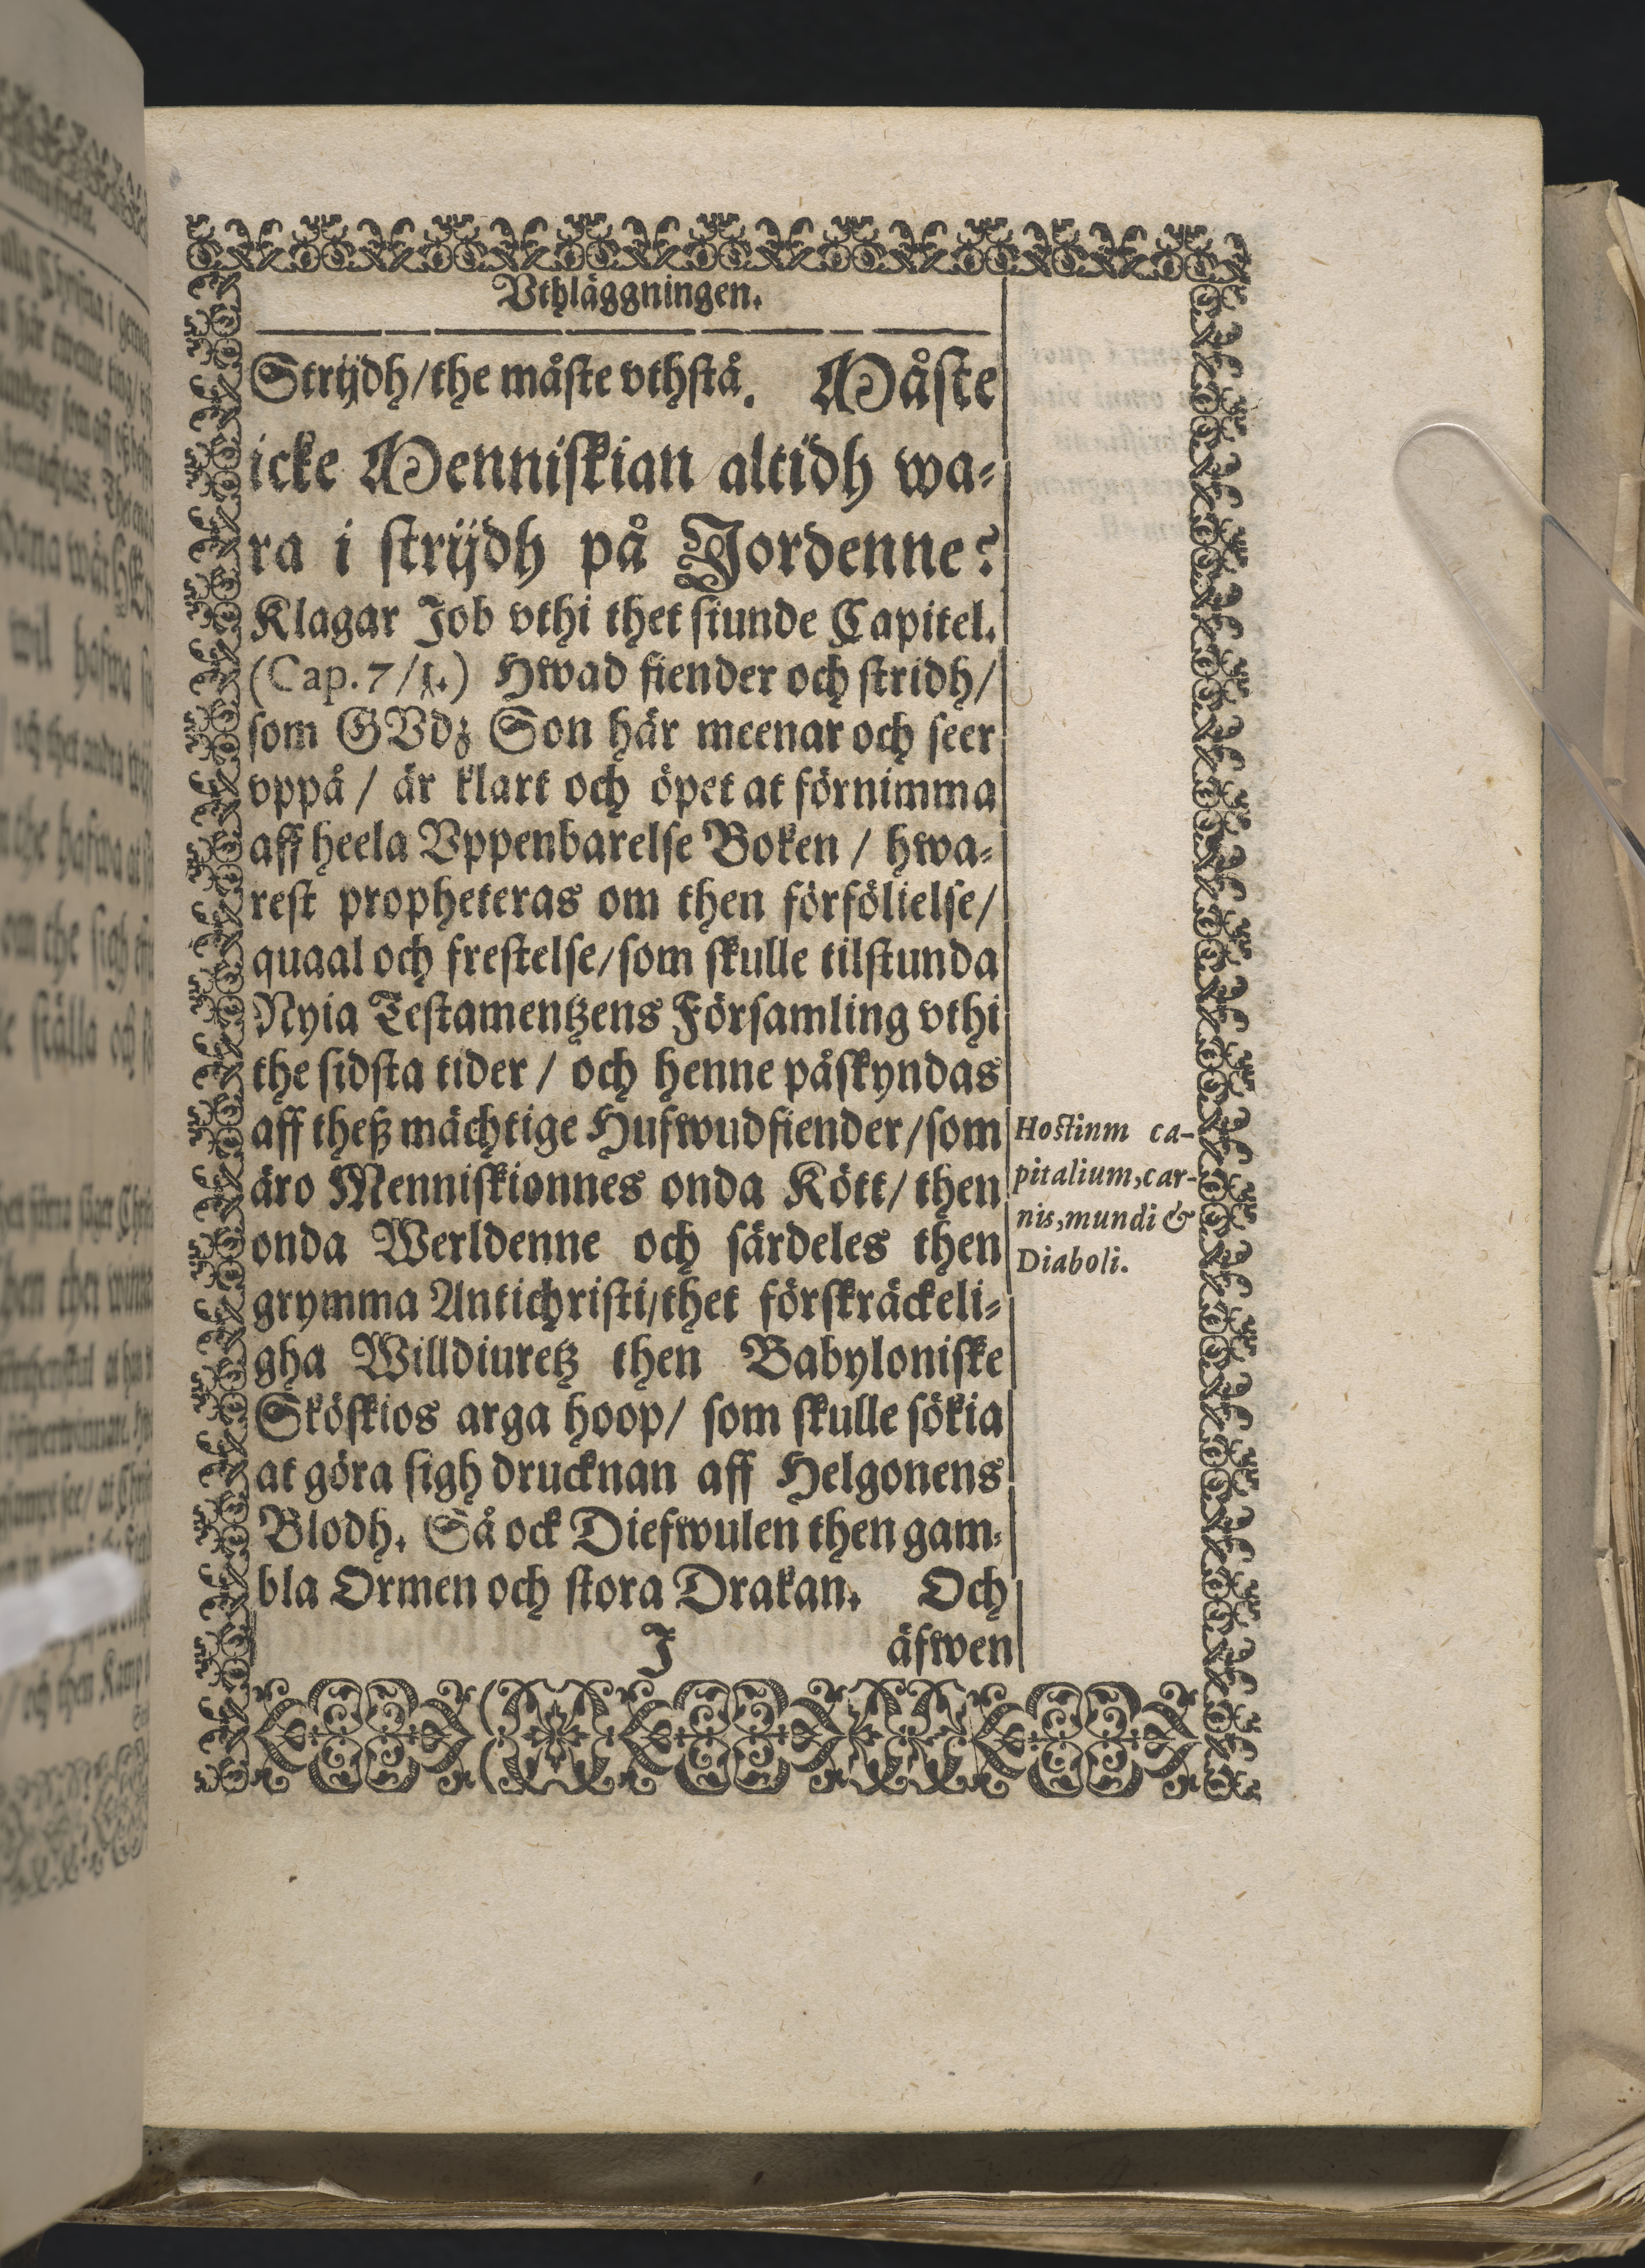 Vthläggningen.
Strijdh/the måste vthstå. Måste
icke Menniskian altidh wa-
ra i strijdh på Jordenne?
Klagar Job vthi thet siunde Capitel.
(Cap. 7/1.) Hwad fiender och stridh/
som GVdz Son här meenar och seer
vppå / är klart och öpet at förnimma
aff heela Vppenbarelse Boken / hwa-
rest propheteras om then förfölielse/
quaal och frestelse/som skulle tilstunda
Nyia Testamentzens Församling vthi
the sidsta tider / och henne påskyndas
aff theß mächtige Hufwudfiender/som
äro Menniskionnes onda Kött/ then
onda Werldenne och särdeles then
grymma Antichristi/thet förskräckeli-
gha Willdiuretz then Babyloniske
Sköskios arga hoop/ som skulle sökia
at göra sigh drucknan aff Helgonens
Blodh. Så ock Diefwulen then gam-
bla Ormen och stora Drakan. Och
J äfwen
Hostinm ca-
pitalium, car-
nis, mundi &
Diaboli.